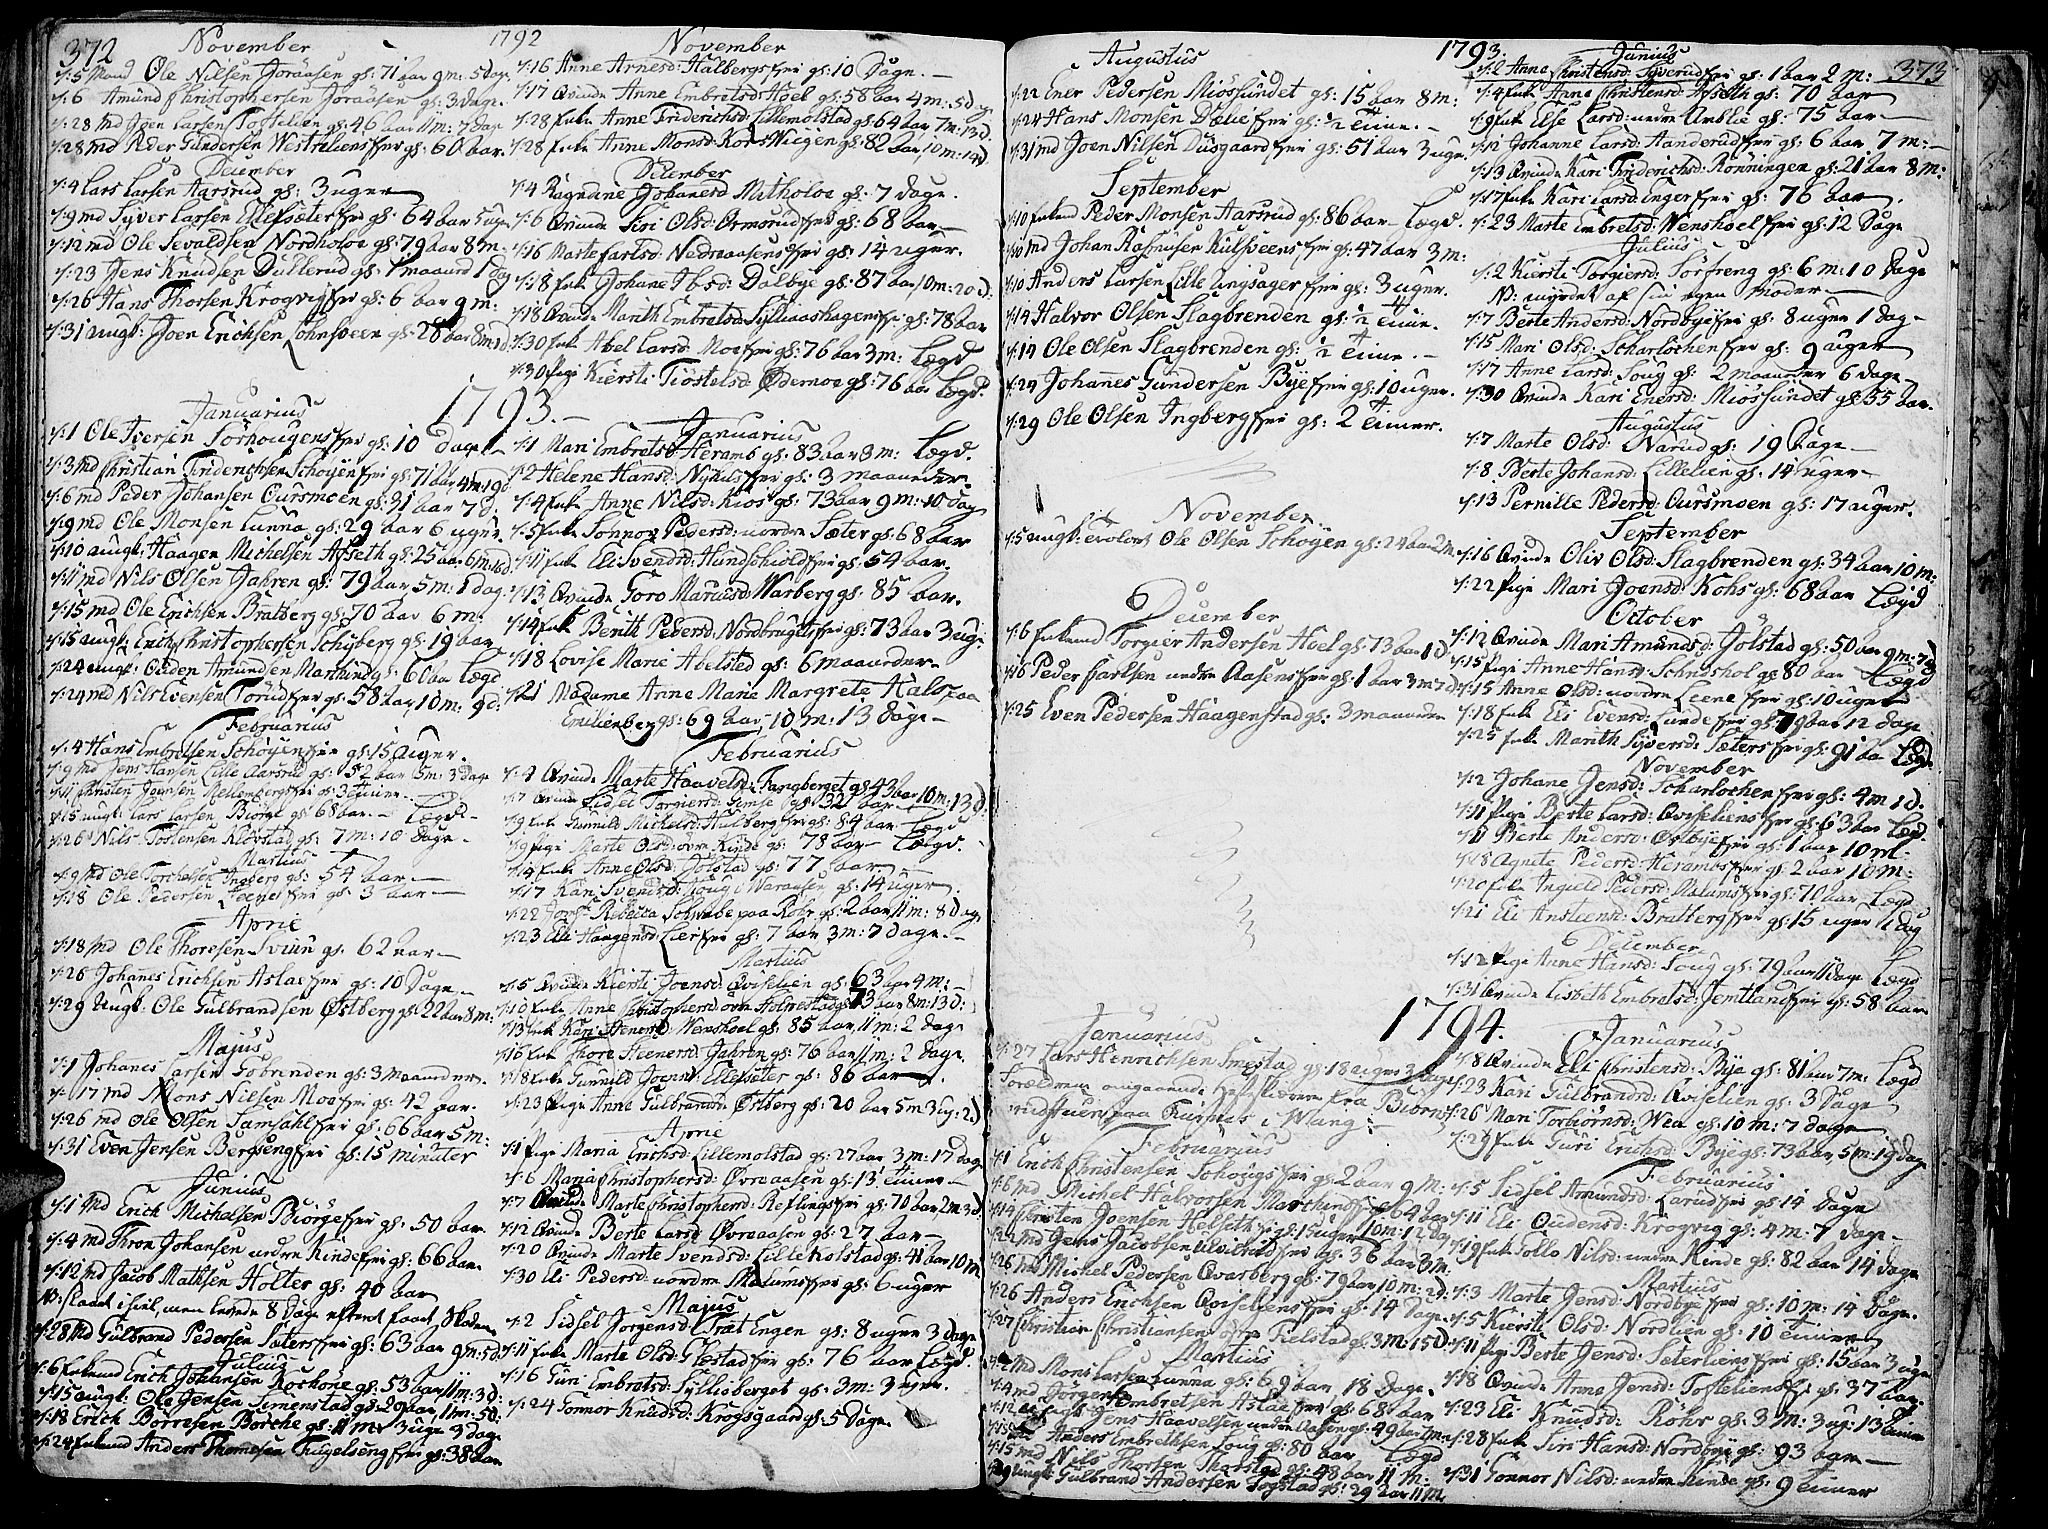 372
November
d: 5 Mand Ole Nilsen Joraasen gl: 71 aar 9 m: 5 dage
d: 6 Amund Christophersen Joraasen gl: 3 dage
d: 28 md Joen Larsen Tostelien gl: 46 aar 11 m: 7 dage
d: 28 md Peder Gundersen Westreliens eier gl: 60 aar.
December
d: 4 Lars Larsen Aarsrud gl: 3 uger
d: 9 md Syver Larsen Ellefsæter eier gl: 64 aar
d: 12 md Ole Sevaldsen Nordholoe gl: 79 aar 8 m:
d: 23 Jens Knudsen Dullerud gl: 1 maaned 1 dag
d: 26 Hans Thorsen Krogvig eier gl: 6 aar 9 m:
d: 31 ungk: Joen Erichsen Lohnsveen gl: 28 aar 8 m:
1793.
Januarius
d: 1 Ole Iversen Sørhougens eier gl: 10 dage
d: 3 md Christian Friderichsen Schøyen eier gl: 71 aar 4 m: 19 d
d: 6 md Peder Johansen Oursmoen gl: 31 aar 7 d:
d: 9 md Ole Monsen Lunna gl: 29 aar 6 uger
d: 10 ungk: Haagen Michelsen Alseth gl: 25 aar 6 m: 16 d:
d: 11 md Nils Olsen Jahren gl: 79 aar 5 m: 1 dag
d: 15 md Ole Erichsen Bratberg gl: 70 aar 6 m:
d: 15 ungk: Erich Christophersen Schyberg gl: 19 aar
d: 24 ungk: Ouden Amundsen Marthind gl: 60 aar Lægd
d: 24 md Nils Evensen Torud eier gl: 58 aar 10 m: 9 d:
Februarius
d: 4 Hans Embretsen Schøyen eier gl: 15 uger.
d: 9 md Jens Hansen Lille Aarsrud gl: 52 aar 5 m: 3 dage
d: 11 Christen Joensen Mellembergs eier gl: 3 timer
d: 15 ungk: Lars Larsen Biørge gl: 68 aar Lægd
d: 26 Nils Tostensen Klørstad gl: 7 m: 10 dage
Martius
d: 9 md Ole Torchelsen Ingberg gl: 54 aar
d: 18 Ole Pedersen eier gl: 3 aar
April
d: 18 md Ole Thoresen Sviun gl: 62 aar
d: 26 Johanes Erichsen Aslac eier gl: 10 Dage
d: 29 Ungk: Ole Gulbrandsen Østberg gl: 22 aar 8 m:
Majus
d: 1 Johanes Larsen Gobrenden gl: 3 maaneder.
d: 17 md Mons Nilsen Moe eier gl: 42 aar.
d: 26 md Ole Olsen Samsahl eier gl: 66 aar 5 m:
d: 31 Even Jensen Bergseng eier gl: 15 minuter
Junius
d: 1 Md Erich Michelsen Biørge eier gl: 50 aar
d: 4 md Thron Johansen nedre Kinde eier gl: 66 aar.
d: 12 md Jacob Mathsen Holter gl: 40 aar
NB: slaaet ihiel, men levede 8 dage efterat faaet Skaden
d: 28 Md Gulbrand Pedersen Sæters eier gl: 63 aar 9 m: 5 d:
Julius
d: 6 Enkemd Erich Johansen Kochone gl: 53 aar 11 m: 3 d:
d: 15 ungk: Ole Jensen Simenstad gl: 20 aar 11 m: 5 d:
d: 18 Erich Borresen Borche gl: 11 m: 3 uge 3 dage
d: 24 Enkemd Anders Thomesen Fugelseng eier gl: 38 aar
1792
November
d: 16 Anne Arnesd: Halbergs eier gl: 10 Dage.
d: 17 Qvinde Anne Embretsd: Hoel gl: 58 aar 4 m: 5 dage
d: 28 Enke Anne Friderichsd: Lillemolstad gl: 64 aar 7 m: 13 d.
d: 28 Enke Anne Monsd: Kors Wiigen gl: 82 aar 10 m: 14 d
December
d: 4 Ragndine Johanesd: Mitholoe gl: 7 dage.
d: 6 Qvinde Siri Olsd: Ormsrud eier gl: 68 aar
d: 16 Marte Carlsd: Nedreaasens eier gl: 14 uger.
d: 18 Enke Johane Ibsd: Dalbye gl: 87 aar 10 m: 20 d:
d: 18 Qvinde Marith Embretsd: Syllinashagens eier gl: 78 aar
d: 30 Enke Abel Larsd: Moe eier gl: 76 aar 3 m: Lægd
d: 30 Pige Kiersti Tiøstelsd: Ødemoe gl: 76 aar Lægd.
Januarius
d: 1 Mari Embretsd: Heramb gl: 83 aar 3 m: Lægd.
d: 2 Helene Hansd: Nyhus eier gl: 3 maaneder.
d: 4 Enke Anne Nilsd: Kios gl: 73 aar 9 m: 10 dage
d: 5 Enke Sonnov Pedersd: nordre Sæter gl: 68 aar
d: 11 Enke Eli Svendsd: Hundschiold eier gl: 54 aar.
d: 13 Qvinde Goro Mariusd: Warberg gl: 85 aar.
d: 14 Enke Berith Pedersd: Nordbrugets eier gl: 73 aar 3 uge:
d: 18 Lovise Marie Abelsted gl: 6 maaneder
d: 21 Madame Anne Marie Margrete Hals paa
Emilienberg gl: 69 aar 10 m: 13 dage
Februarius
d: 2 Qvinde Marte Haavelsd: Fangberget gl: 43 aar 10 m: 13 d:
d: 7 Qvinde Sidsel Torgiersd: Gimse gl: 32 aar
d: 9 Enke Gunnild Michelsd: Hulberg eier gl: 84 aar Lægd
d: 9 Pige Marte Olsd: øvre Kinde gl: 78 aar Lægd.
d: 14 Enke Anne Olsd: Jolstad gl: 77 aar.
d: 17 Kari Svendsd: Soug i Waraasen gl: 14 uger.
d: 22 Jomf: Rebecca Schwabe paa Rohr gl: 2 aar 11 m: 8 dage
d: 23 Eli Haagensd: Lier eier gl: 7 aar 3 m: 7 dage.
Martius
d: 5 Qvinde Kiersti Joensd: Qviselien gl: 63 aar 4 m:
d: 10 Enke Anne Christophersd: øvre Holmestad gl: 73 aar 8 m: 13 d:
d: 13 Enke Kari Stenersd: Wenshoel gl: 85 aar 11 m: 2 dage
d: 16 Enke Thore Steenersd: Jahren gl: 76 aar 11 m: 2 dage.
d: 18 Enke Gunnild Joensd: Ellefsæter gl: 86 aar
d: 23 Pige Anne Gulbrandsd: Østberg gl: 20 aar 5 m 3 ug: 2 d
April
d: 1 Pige Maria Erichsd: Lillemolstad gl: 27 aar 3 m: 17 dage
d: 6 Maria Christophersd: Øvreaasen gl: 13 timer
d: 7 Qvinde Marte Christophersd: Reflings eier gl: 70 aar 2 m: 3 d
d: 12 Qvinde Berte Larsd: Øvreaasen gl: 27 aar
d: 20 Qvinde Marte Svendsd: Lille Kolstad gl: 41 aar 10 m
d: 30 Eli Pedersd: nordre Malums eier gl: 6 uger
Majus
d: 2 Sidsel Jorgensd: Træt Engen gl: 8 uger 3 dage
d: 11 Enke Marte Olsd: Glæstad eier gl: 76 aar Lægd.
d: 16 Guri Embretsd: Sylliaberget gl: 3 m: 3 uger.
d: 24 Gonnor Knudsd: Krogsgaard gl: 5 Dage.
1793.
373
Augustus
d: 22 Ener Pedersen Miøssundet gl: 15 aar 8 m:
d: 24 Hans Monsen Dælie eier gl: ½ time.
d: 31 md Joen Nilsen Dusgaard eier gl: 51 aar 3 uger
September
d: 10 Enkemd Peder Monsen Aarsrud gl: 86 aar Lægd.
d: 10 md Johan Rasmusen Kulsveens eier gl: 47 aar 3 m:
d: 10 Anders Larsen Lille Ringsager eier gl: 3 uger.
d: 14 Halvor Olsen Slagbrenden gl: ½ time.
d: 14 Ole Olsen Slagbrenden gl: ½ time.
d: 24 Johannes Gundersen Bye eier gl: 10 uger.
d: 29 Ole Olsen Ingberg eier gl: 2 timer.
November
d: 5 ungk: Ole Olsen Schøyen gl: 24 aar 2 m
December
d: 6 Enkemd Torgier Andersen Hoel gl: 73 aar 1 d.
d: 16 Peder Carlsen nedre Aasens eier gl: 1 aar 3 m: 7 d
d: 25 Even Pedersen Haagenstad gl: 3 maaneder
1794.
Januarius
d: 27 Lars Henrichsen Smestad gl: 18 uger 3 dage
Forældrene
Februarius
d: 1 Erich Christensen eier gl: 2 aar 9 m:
d: 6 md Michel Halvorsen Marthind gl: 64 aar
d: 14 Christen Joensen Helseth gl: 15 uger
d: 22 md Jens Jacobsen eier gl: 36 aar 3 m.
d: 26 md Michel Pedersen Qvarberg gl: 79 aar 10 m: 2 d:
d: 26 Anders Erichsen Qviseliens eier gl: 14 dage.
d: 27 Christian Christiansen øvre Fielstad gl: 3 m: 15 d:
Martius
md Mons Larsen Lunna gl: 69 aar 18 dage
d: 4 md Jørgen Embretsen Aslac eier gl: 68 aar
d: 12 Jens Haavelsen nedre Aasen gl: 49 aar
Anders Embretsen Soug gl: 80 aar Lægd
d: 15 md Nils Thorsen Thorstad gl: 48 aar 11 m:
ungk: Gulbrand Andersen Fogstad gl: 29 aar 11 m
Junius
d: 2 Anne Christensd: Syverud eier gl: 1 aar 2 m:
d: 4 Enke Anne Christensd: Alseth gl: 70 aar
d: 9 Enke Else Larsd: nedre Amblie gl: 75 aar
d: 11 Johanne Larsd: Aanderud eier gl: 6 aar 7 m:
d: 13 Qvinde Kari Friderichsd: Rønningen gl: 21 aar 8 m:
d: 17 Enke Kari Larsd: Enger eier gl: 76 aar.
d: 23 Marte Embretsd: Wenshoel eier gl: 12 Dage
Julius
d: 2 Kiersti Torgiersd: Sorfreng gl: 6 m: 10 dage
NB: myrdet af sin egen Moder
d: 7 Berte Andersd: Nordbye eier gl: 8 uger 1 dag
d: 15 Mari Olsd: Scharlochen eier gl: 9 uger
d: 17 Anne Larsd: Soug gl: 2 maaneder 6 dage
d: 30 Qvinde Kari Enersd: Miøssundet gl: 55 aar.
Augustus
d: 7 Marte Olsd: Narud gl: 19 Dage
d: 8 Berte Johansd: Lillelien gl: 14 uger
d: 13 Pernille Pedersd: Oursmoen gl: 17 uger.
September
d: 16 Qvinde Oliv Olsd: Slagbrenden gl: 34 aar 10 m:
d: 22 Pige Mari Joensd: Kohs gl: 68 aar Lægd
October
d: 12 Qvinde Mari Amundsd: Jolstad gl: 50 aar 9 m: 7 d
d: 15 Pige Anne Hansd: gl: 80 aar Lægd
d: 15 Anne Olsd: nordre Leene eier gl: 10 uger
d: 18 Enke Eli Evensd: Lunde eier gl: 79 aar 12 dage
d: 25 Enke Marith Syversd: Sæters eier gl: 91 aar Lægd
November
d: 2 Johane Jensd: Scharlochen eier gl: 4 m 1 d.
d: 11 Pige Berte Larsd: Qviseliens eier gl: 63 aar Lægd.
d: 11 Berte Andersd: Østbye eier gl: 1 aar 10 m:
d: 18 Agnete Pedersd: Herambs eier gl: 2 aar 10 m:
d: 20 Enke Ingeld Pedersd: Malums eier gl: 70 aar Lægd
d: 21 Eli Ansteensd: Bratberg eier gl: 15 uger 1 dag
December
d: 12 Pige Anne Hansd: Soug gl: 79 aar 11 dage Lægd
d: 31 Qvinde Lisbeth Embretsd: Jemtland eier gl: 58 aar
Januarius
d: 8 Qvinde Eli Christensd: Bye gl: 81 aar 7 m: Lægd
d: 23 Kari Gulbrandsd: Qviselien gl: 3 Dage
d: 26 Mari Torbiørnsd: Wea gl: 10 m: 7 dage
d: 29 Enke Guri Erichsd: Bye gl: 73 aar 5 m: 15 dage
Februarius
d: 5 Sidsel Amundsd: Larud eier gl: 14 Dage
d: 11 Eli Oudensd: Krogvig gl: 4 m: 7 dage
d: 19 Enke Tollo Nilsd: nedre Kinde gl: 82 aar 14 dage
Martius
d: 3 Marte Jensd: Nordbye eier gl: 10 m: 14 Dage.
d: 5 Kiersti Olsd: Nordlien gl: 10 timer
d: 11 Pige Berte Jensd: Seterliens eier gl: 15 aar 3 uger
d: 18 Qvinde Anne Jensd: Tosteliens eier gl: 37 aar
d: 23 Eli Knudsd: Rohr gl: 3 m: 3 ug: 13 timer
d: 28 Enke Siri Hansd: Nordbye gl: 93 aar
d: 31 Gonnor Nilsd: nedre Kinde gl: 9 timer